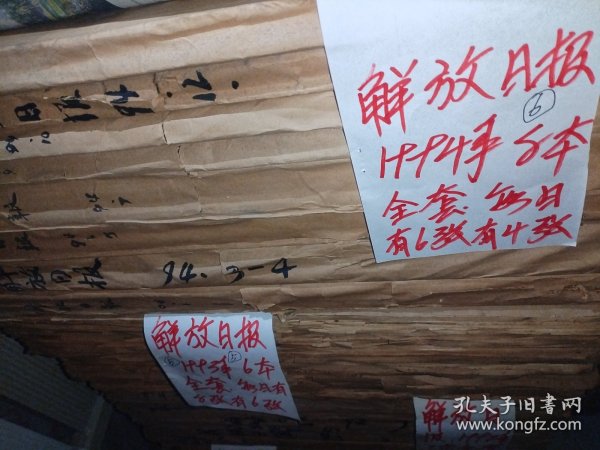 解放日报
⑥
1994年 8本
全套. 每日
有6张有4张
94.12.
94.7
94.5
解放日报 94.3-4
解放日报
⑤
1993年 6本
全套 每日有
8张有6张
解放日
孔夫子旧书网
www.kongfz.com